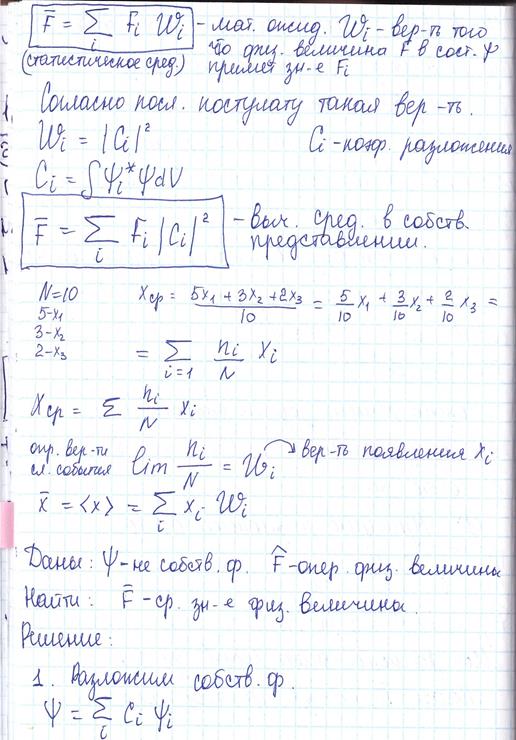 F̄ = Σᵢ Fᵢ Wᵢ - мат. ожид. Wᵢ - вер-ть того
(статистическое сред.) что физ. величина F в сост. ψ
примет зн-е Fᵢ
Согласно посл. постулату такая вер-ть.
Wᵢ = |Cᵢ|² Cᵢ - коэф. разложения
Cᵢ = ∫ψᵢ*ψdV
F̄ = Σᵢ Fᵢ |Cᵢ|² - выч. сред. в собств.
представлении.
N=10 Xср = (5x₁ + 3x₂ + 2x₃)/10 = 5/10 x₁ + 3/10 x₂ + 2/10 x₃ =
5-x₁
3-x₂
2-x₃ = Σᵢ₌₁ nᵢ/N xᵢ
Xср = Σ nᵢ/N xᵢ
опр. вер-ти
сл. события lim nᵢ/N = Wᵢ вер-ть появления xᵢ
x̄ = <x> = Σᵢ xᵢ Wᵢ
Даны: ψ - не собств. ф. F̂ - опер. физ. величины
Найти: F̄ - ср. зн-е физ. величины.
Решение:
1. Разложим собств. ф.
ψ = Σᵢ Cᵢ ψᵢ